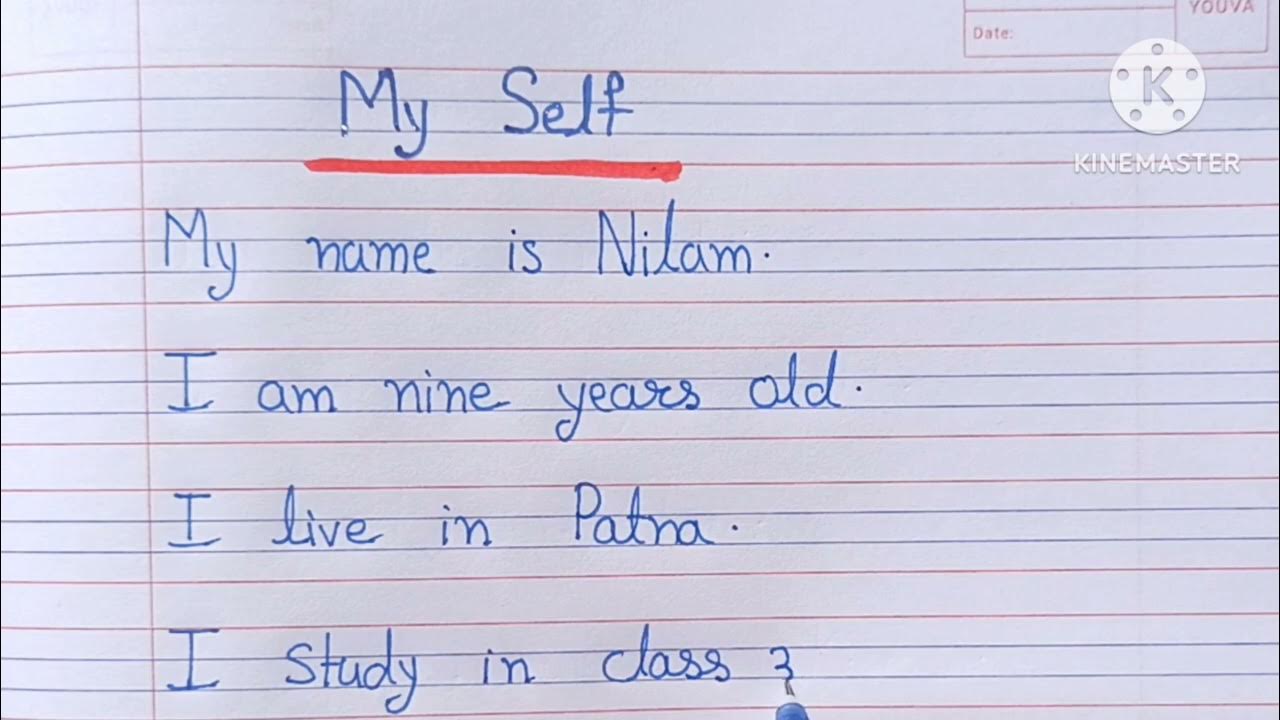 YOUVA
Date:
My Self
KINEMASTER
My name is Nilam.
I am nine years old.
I live in Patna.
I study in class 3